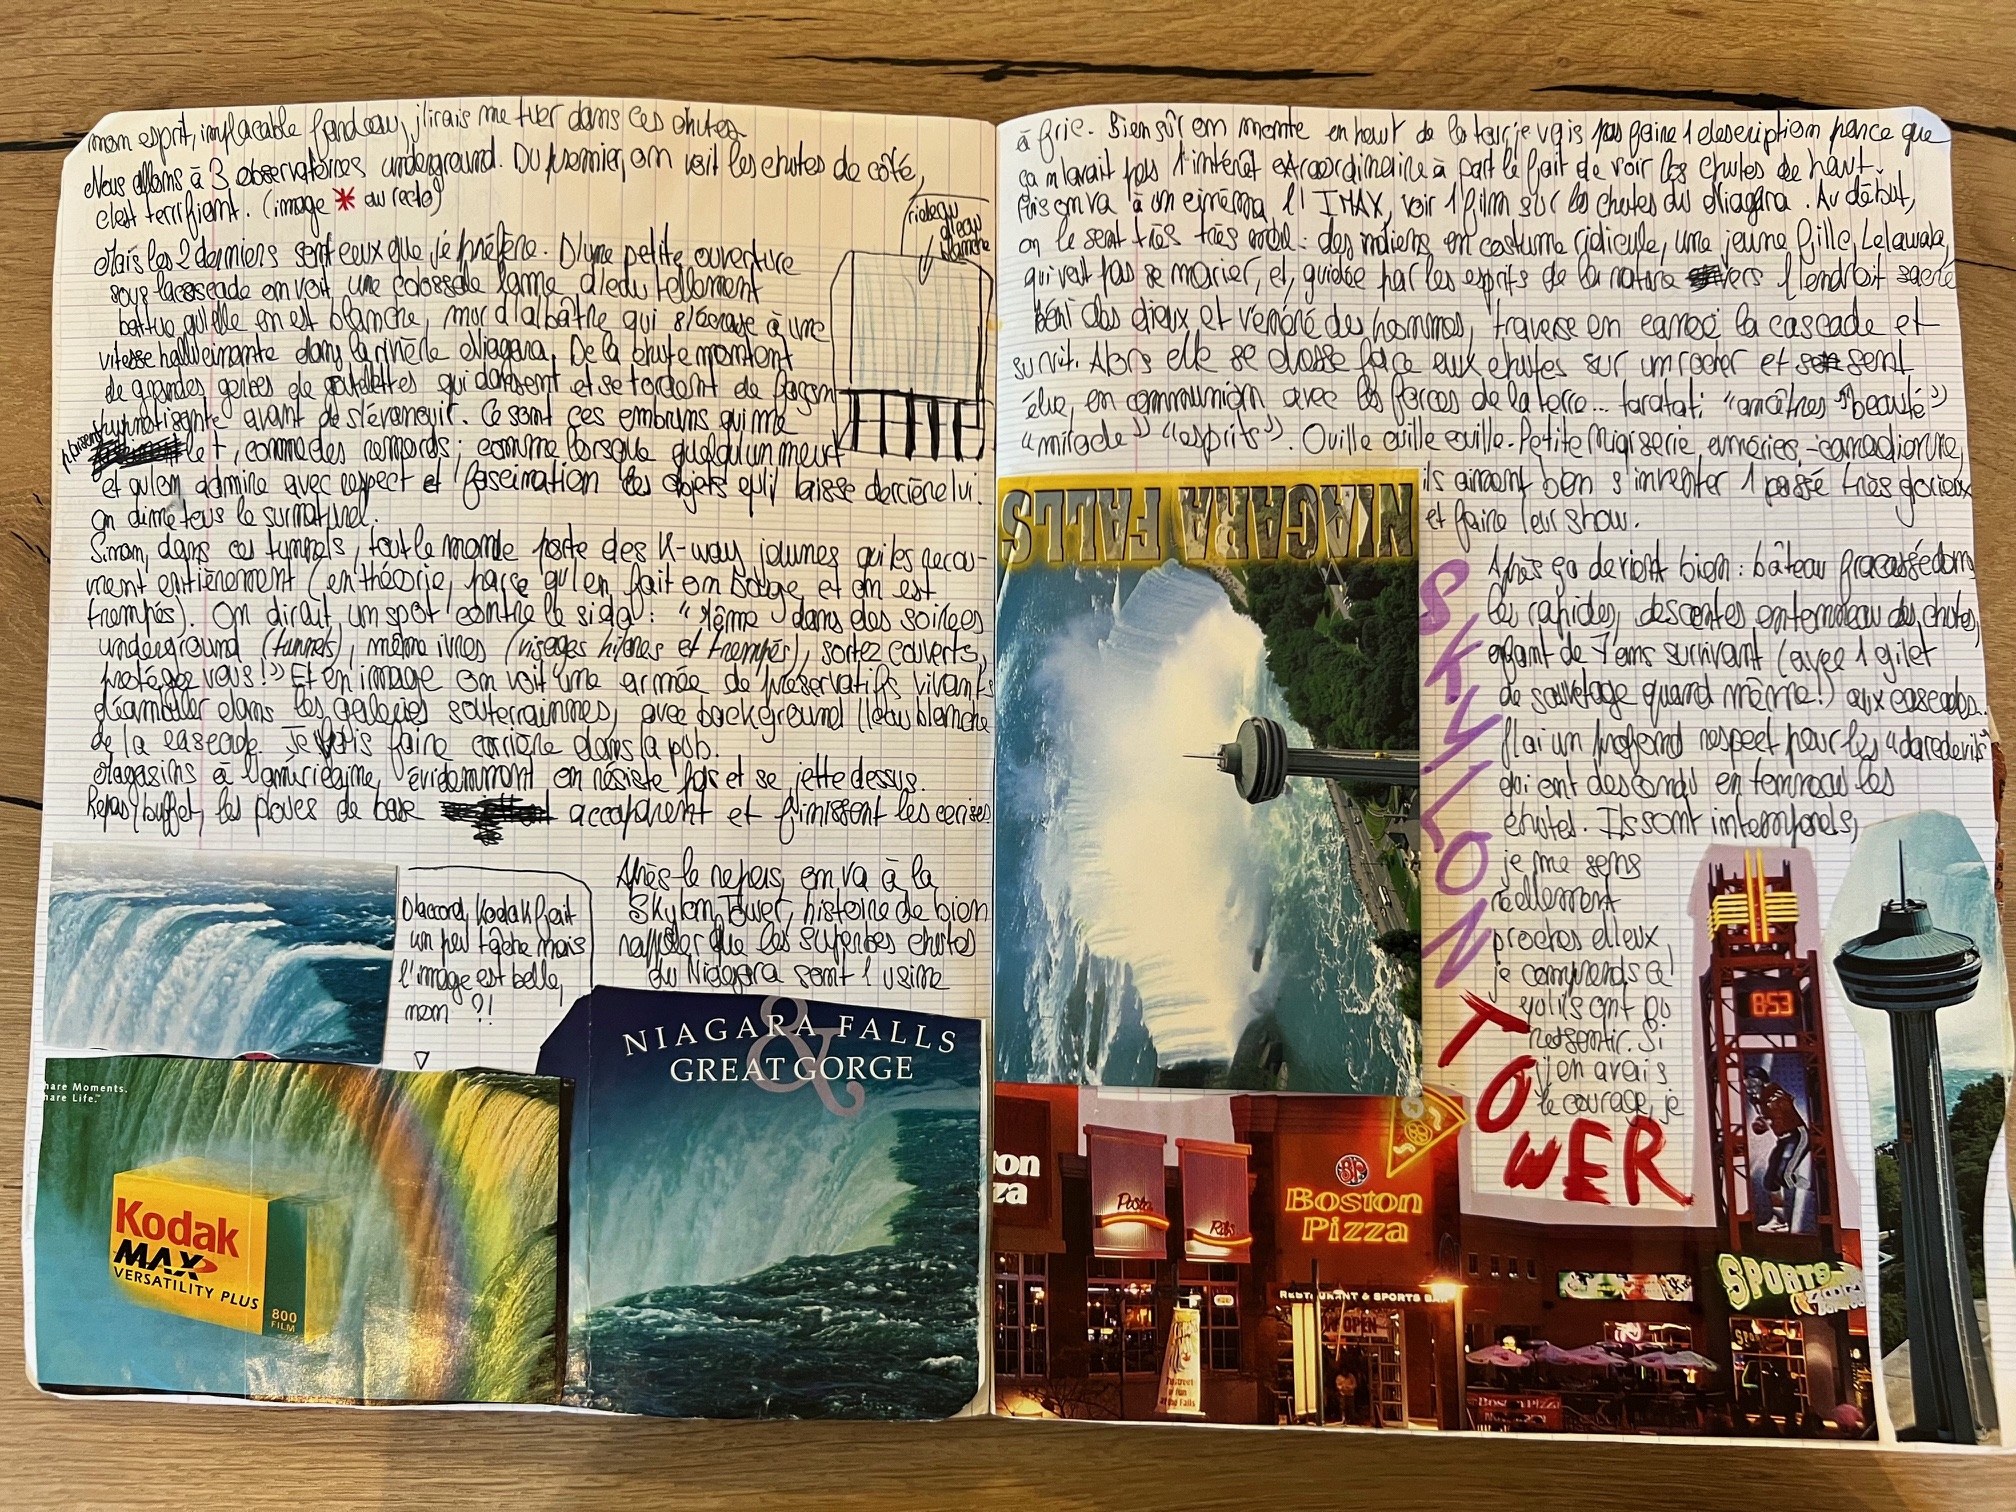 mon esprit, implacable fardeau, j'irais me tuer dans ces chutes.
Nous allons à 3 observatoires underground. Du premier, on voit les chutes de côté,
c'est terrifiant. (image * au recto)
rideau
d'eau
blanche
Mais les 2 derniers sont ceux que je préfère. D'une petite ouverture
sous la cascade on voit une colossale lame d'eau tellement
battue qu'elle en est blanche, mur d'albâtre qui s'écrase à une
vitesse hallucinante dans la rivière Niagara. De la chute montent
de grandes gerbes de goutelettes qui dansent et se tordent de façon
hypnotisante avant de s'évanouir. Ce sont ces embruns qui me
plaisent le +, comme des remords; comme lorsque quelqu'un meurt
et qu'on admire avec respect et fascination les objets qu'il laisse derrière lui.
On dirait le surnaturel.
Sinon, dans ces tunnels, tout le monde porte des K-way jaunes qui les recou-
vrent entièrement (en théorie, parce qu'en fait on bouge et on est
trempés). On dirait un spot contre le sida: "Même dans des soirées
underground (tunnels), même ivres (visages hilares et trempés), sortez couverts,
protégez vous!" Et en image on voit une armée de préservatifs vivants
déambuler dans les galeries souterrainnes, avec background l'eau blanche
de la cascade. Je vais faire carrière dans la pub.
Magasins à l'américaine, évidemment on résiste pas et se jette dessus.
Repas/buffet, les pieuvres de base accaparent et finissent les cerises
D'accord, Kodak fait
un peu tâche mais
l'image est belle,
non ?!
Après le repas, on va à la
Skylon Tower, histoire de bien
rappeler que les superbes chutes
du Niagara sont 1 usine
hare Moments.
hare Life.™
Kodak
MAX
VERSATILITY PLUS
800
FILM
NIAGARA FALLS
&
GREAT GORGE
à fric. Bien sûr on monte en haut de la tour, je vais pas faire 1 description parce que
ça n'avait pas 1 intérêt extraordinaire à part le fait de voir les chutes de haut.
Puis on va à un cinéma, l'IMAX, voir 1 film sur les chutes du Niagara. Au début,
on le sent très très mal: des indiens en costume ridicule, une jeune fille, Lelawala,
qui veut pas se marier, et, guidée par les esprits de la nature vers l'endroit sacré
béni des dieux et vénéré des hommes, traverse en canoë la cascade et
survit. Alors elle se dresse face aux chutes sur un rocher et se sent
élue, en communion avec les forces de la terre... taratati "ancêtres" "beauté"
"miracle" "esprits". Ouille ouille ouille. Petite niaiserie américo-canadienne,
ils aiment bien s'inventer 1 passé très glorieux
et faire leur show.
NIAGARA FALLS
SKYLON
TOWER
Après ça devient bien: bâteau fracassé dans
les rapides, descentes en tonneau des chutes,
enfant de 7 ans survivant (avec 1 gilet
de sauvetage quand même!) aux cascades...
J'ai un profond respect pour les "daredevils"
qui ont descendu en tonneau les
chutes. Ils sont intemporels,
je me sens
réellement
proches d'eux,
je comprends ce
qu'ils ont pu
ressentir. Si
j'en avais
le courage, je
8:53
on
za
Pasta
Ribs
BP
BOSTON
PIZZA
RESTAURANT & SPORTS BAR
OPEN
SPORTS
Boston Pizza